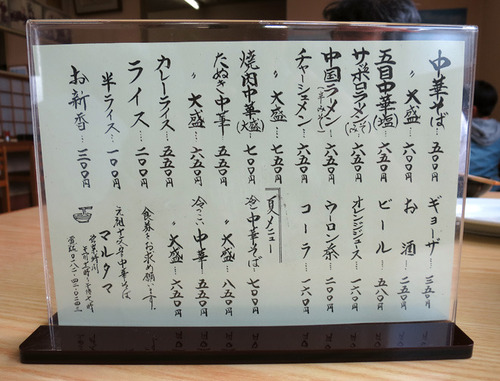 中華そば…五〇〇円
〃大盛…六五〇円
五目中華(塩)…六五〇円
サッポロラーメン(みそ)…六五〇円
中国ラーメン…六五〇円
チャーシュメン…六五〇円
〃大盛…七五〇円
焼肉中華(大盛)…七〇〇円
たぬき中華…五五〇円
〃大盛…六五〇円
カレーライス…五五〇円
ライス…二〇〇円
半ライス…一〇〇円
お新香…二〇〇円
ギョーザ…三五〇円
お酒…二五〇円
ビール…五八〇円
オレンジジュース…一六〇円
ウーロン茶…二〇〇円
コーラ…一六〇円
夏メニュー
冷し中華そば…七〇〇円
〃大盛…八五〇円
冷っこい中華…五五〇円
〃大盛…六五〇円
食券をお求め願います。
元祖十文字中華そば
マルタマ